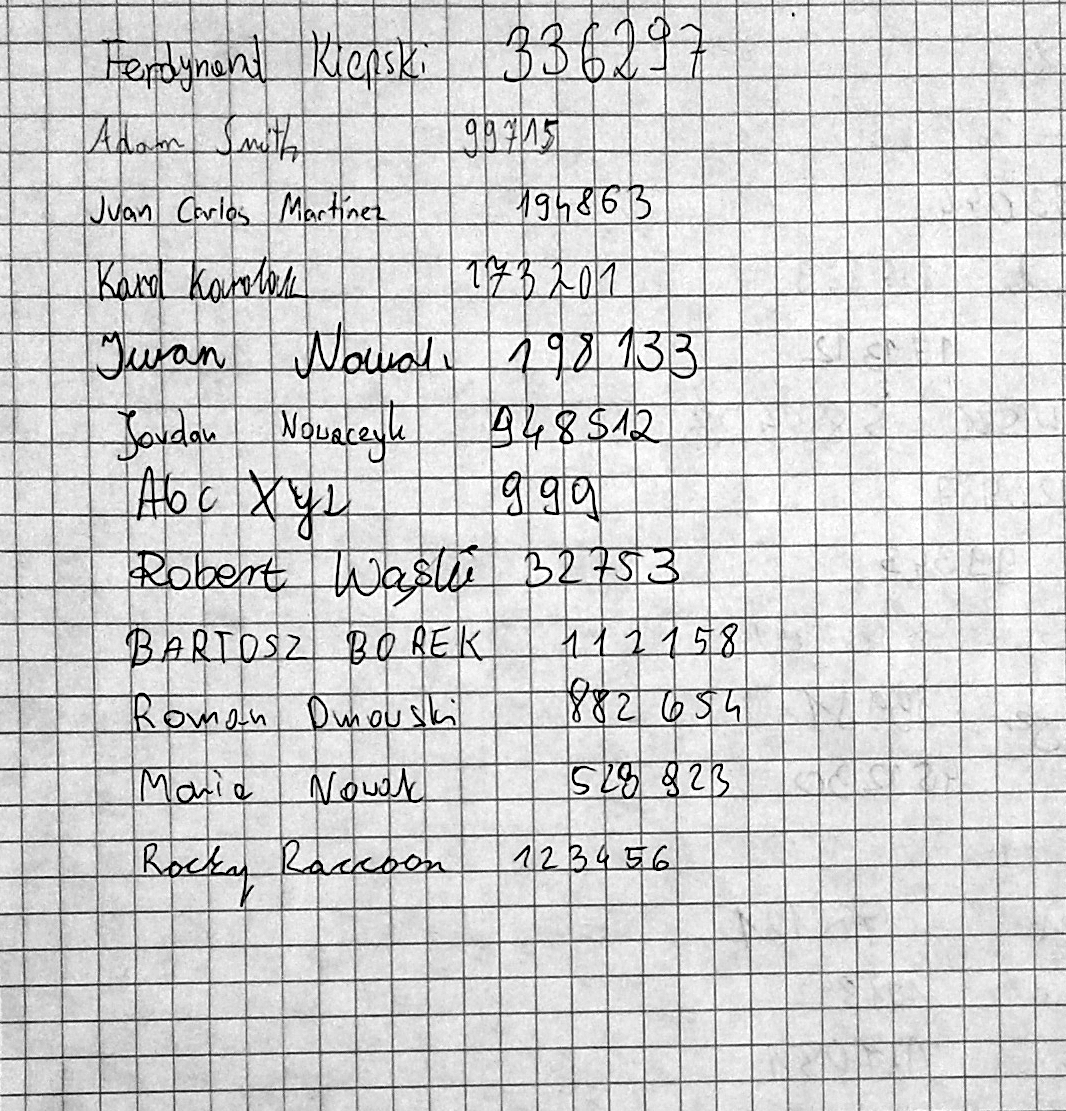 Ferdynand Kiepski 336297
Adam Smith 99715
Juan Carlos Martinez 194863
Karol Karolak 173201
Iwan Nowak 198133
Jordan Nowaczyk 948512
Abc Xyz 999
Robert Wąski 32753
BARTOSZ BOREK 112158
Roman Dmowski 882654
Maria Nowak 529 923
Rocky Raccoon 123456